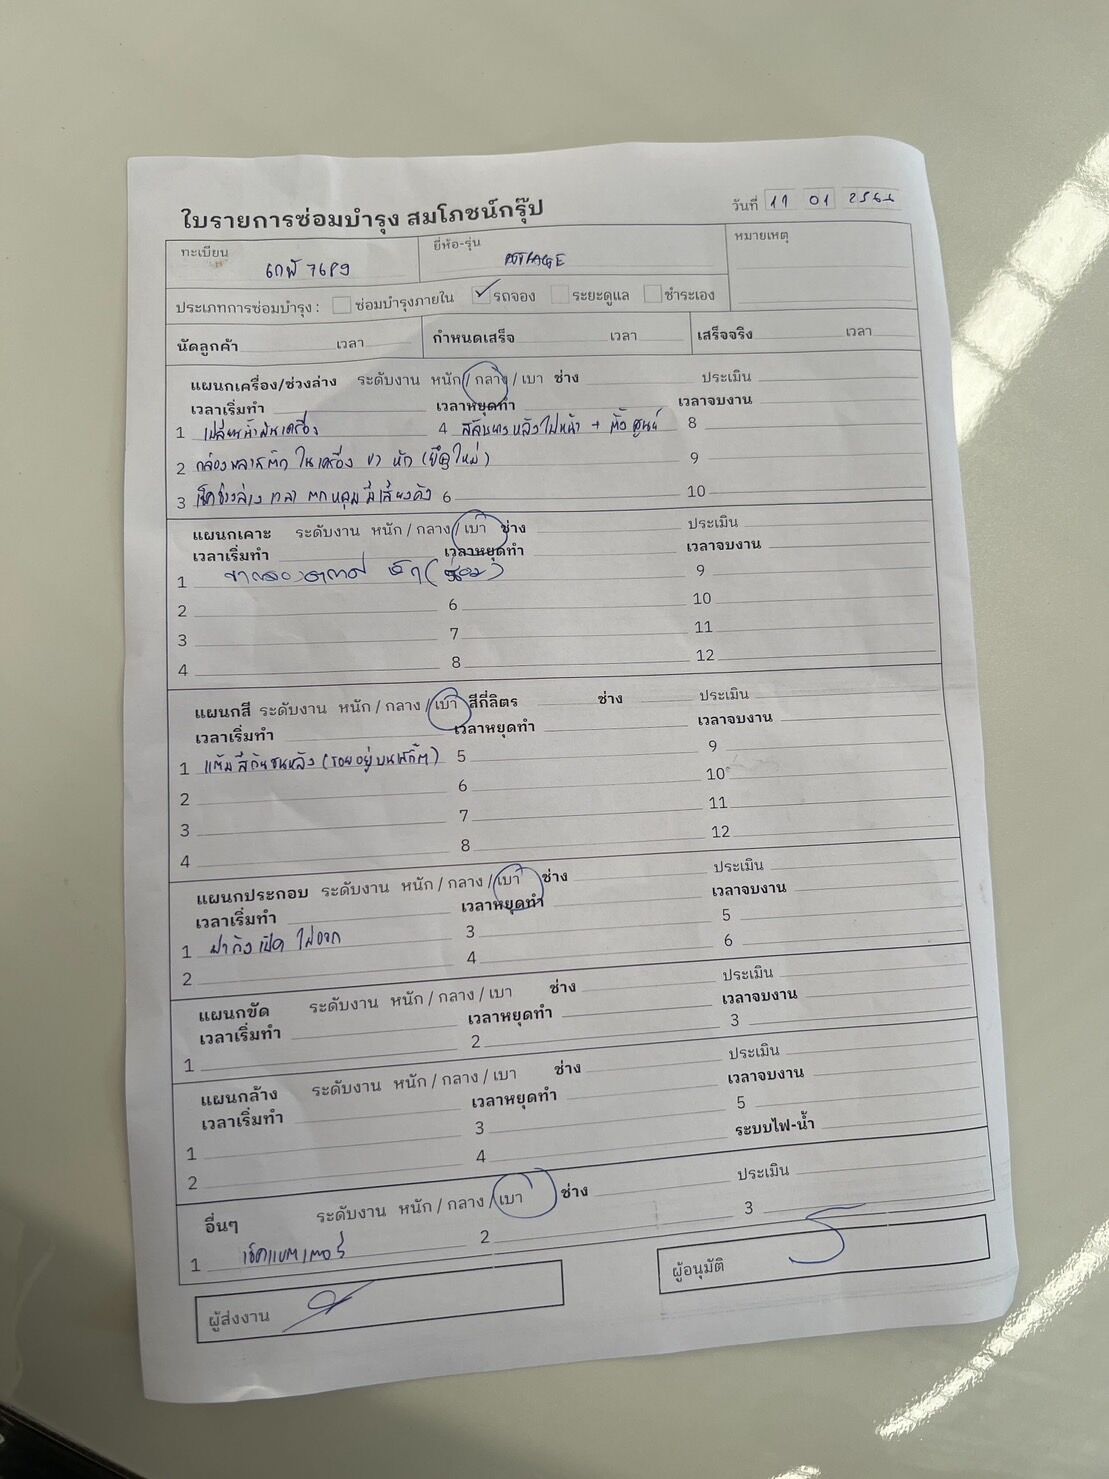 ใบรายการซ่อมบำรุง สมโภชน์กรุ๊ป
วันที่ 17 01 256
ทะเบียน 7689 ยี่ห้อ-รุ่น หมายเหตุ
ประเภทการซ่อมบำรุง : ซ่อมบำรุงภายใน ✓ รถจอง ระยะดูแล ชำระเอง
นัดลูกค้า เวลา กำหนดเสร็จ เวลา เสร็จจริง เวลา
แผนกเครื่อง/ช่วงล่าง ระดับงาน หนัก / กลาง / เบา ช่าง ประเมิน
เวลาเริ่มทำ เวลาหยุดทำ เวลาจบงาน
1 เปลี่ยนน้ำมันเครื่อง 4 สลับยางหลังไปหน้า + ตั้งศูนย์ 8
2 กล่องพลาสติก ในเครื่อง ขา หัก (ยึดใหม่) 9
3 เช็คช่วงล่าง เวลา ตกหลุมมีเสียงดัง 6 10
แผนกเคาะ ระดับงาน หนัก / กลาง / เบา ช่าง ประเมิน
เวลาเริ่มทำ เวลาหยุดทำ เวลาจบงาน
1 (ซ่อม) 9
2 6 10
3 7 11
4 8 12
แผนกสี ระดับงาน หนัก / กลาง / เบา สีกี่ลิตร ช่าง ประเมิน
เวลาเริ่มทำ เวลาหยุดทำ เวลาจบงาน
1 แต้มสีกันชนหลัง (รอยอยู่บนสเกิ๊ต) 5 9
2 6 10
3 7 11
4 8 12
แผนกประกอบ ระดับงาน หนัก / กลาง / เบา ช่าง ประเมิน
เวลาเริ่มทำ เวลาหยุดทำ เวลาจบงาน
1 ฝาถังเปิด ไม่ออก 3 5
2 4 6
แผนกขัด ระดับงาน หนัก / กลาง / เบา ช่าง ประเมิน
เวลาเริ่มทำ เวลาหยุดทำ เวลาจบงาน
1 2 3
แผนกล้าง ระดับงาน หนัก / กลาง / เบา ช่าง ประเมิน
เวลาเริ่มทำ เวลาหยุดทำ เวลาจบงาน
1 3 5
2 4 ระบบไฟ-น้ำ
อื่นๆ ระดับงาน หนัก / กลาง / เบา ช่าง ประเมิน
1 เช็คแบตเตอรี่ 2 3
ผู้ส่งงาน ผู้อนุมัติ